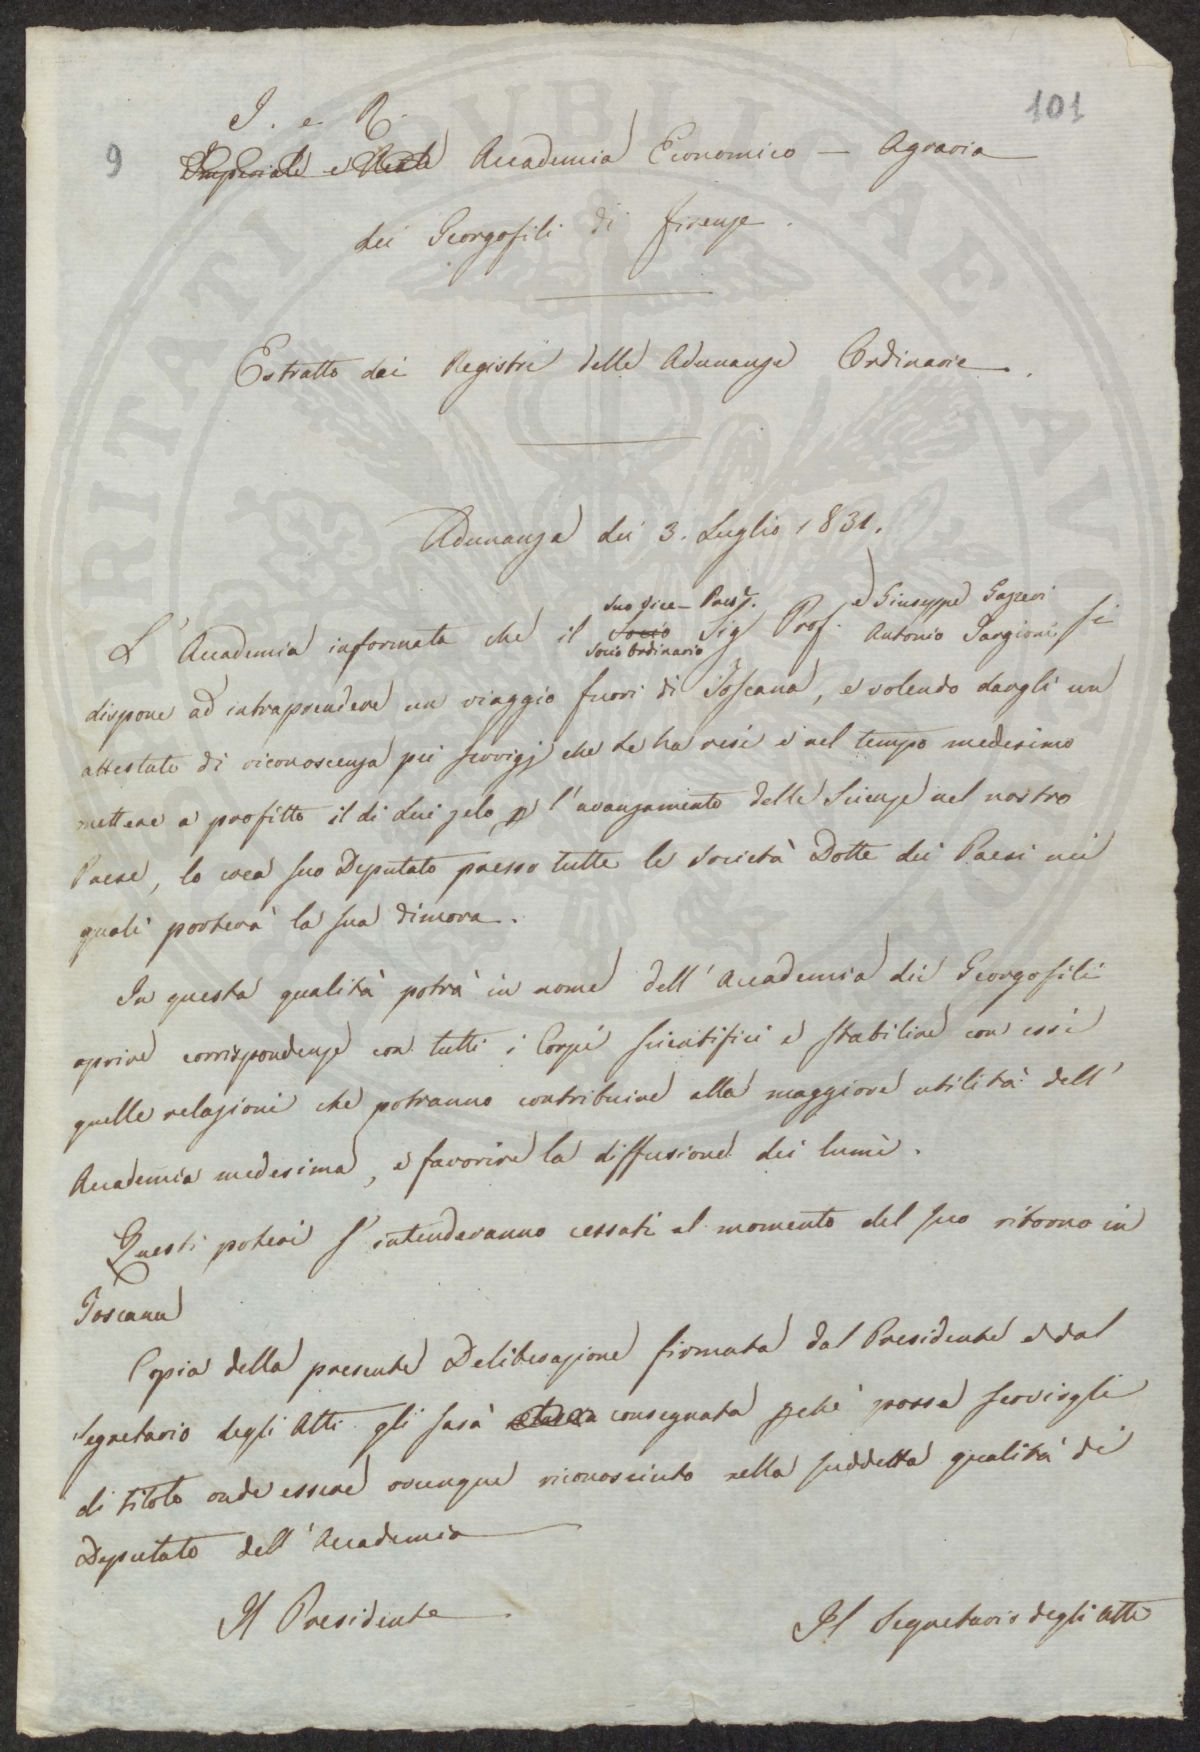 101
9
I. e R.
Imperiale e Reale Accademia Economico — Agraria
dei Georgofili di Firenze.
Estratto dai Registri delle Adunanze Ordinarie.
Adunanza dei 3. Luglio 1831.
suo vice-Presid.te e Giuseppe Gazzeri
L'Accademia informata che il Socio Sig Prof. Antonio Targioni si
Socio Ordinario
dispone ad intraprendere un viaggio fuori di Toscana, e volendo dargli un
attestato di riconoscenza pei servigj che Le ha resi e nel tempo medesimo
mettere a profitto il di Lui zelo p l'avanzamento delle Scienze nel nostro
Paese, lo crea suo Deputato presso tutte le Società Dotte dei Paesi nei
quali porterà la sua dimora.
In questa qualità potrà in nome dell'Accademia dei Georgofili
aprire corrispondenze con tutti i Corpi scientifici e stabilire con essi
quelle relazioni che potranno contribuire alla maggiore utilità dell'
Accademia medesima, e favorire la diffusione dei lumi.
Questi poteri s'intenderanno cessati al momento del suo ritorno in
Toscana
Copia della presente Deliberazione firmata dal Presidente e dal
Segretario degli Atti gli sarà consegnata pchè possa servirgli
di titolo onde essere ovunque riconosciuto nella suddetta qualità di
Deputato dell'Accademia
Il Presidente. Il Segretario degli Atti
PUBLICAE